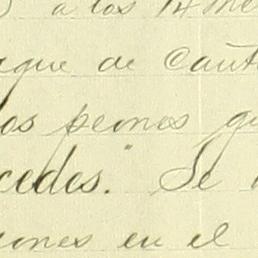 a los 14 me
que de caut
os peones qu
cedes." Se
iones en el